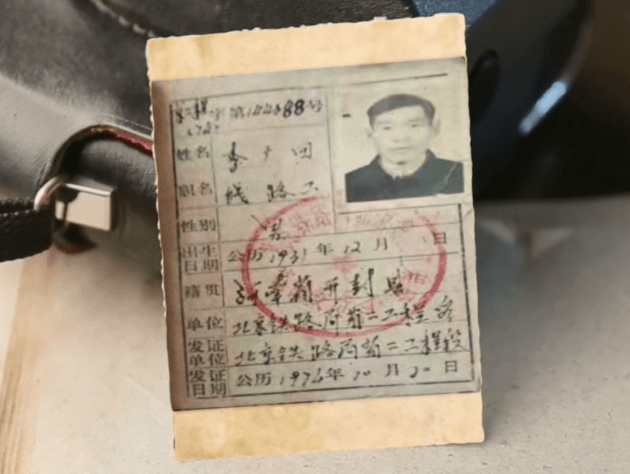 字第144388号
姓名 李 回
职名 线路工
性别 男
出生日期 公历1931年12月 日
籍贯 河南省开封县
单位 北京铁路局第二工程段
发证单位 北京铁路局第二工程段
发证日期 公历1976年10月20日